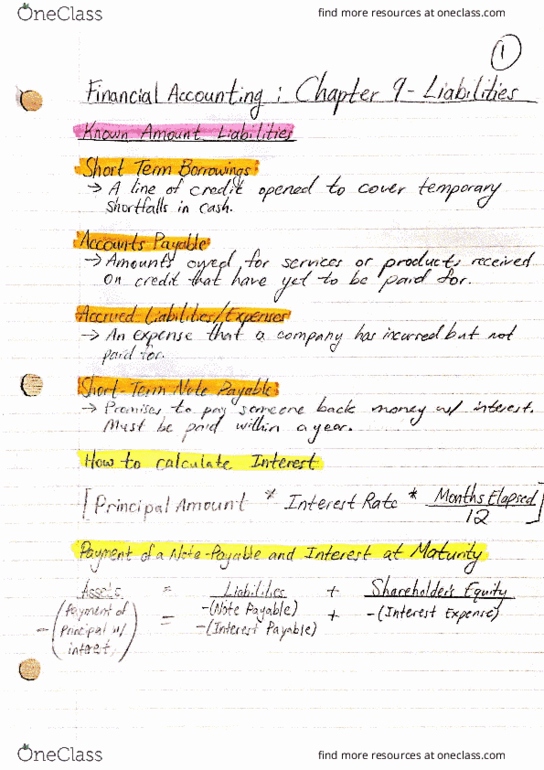 OneClass find more resources at oneclass.com
1
Financial Accounting : Chapter 9 - Liabilities
Known Amount Liabilities
Short Term Borrowings
→ A line of credit opened to cover temporary
shortfalls in cash.
Accounts Payable
→ Amounts owed for services or products received
on credit that have yet to be paid for.
Accrued Liabilities/Expenses
→ An expense that a company has incurred but not
paid for.
Short-Term Note Payable
→ Promises to pay someone back money w/ interest.
Must be paid within a year.
How to calculate Interest
[Principal Amount * Interest Rate * Months Elapsed]
12
Payment of a Note-Payable and Interest at Maturity
Assets = Liabilities + Shareholder's Equity
-(Payment of Principal w/ interest) = -(Note Payable) + -(Interest Expense)
-(Interest Payable)
OneClass find more resources at oneclass.com